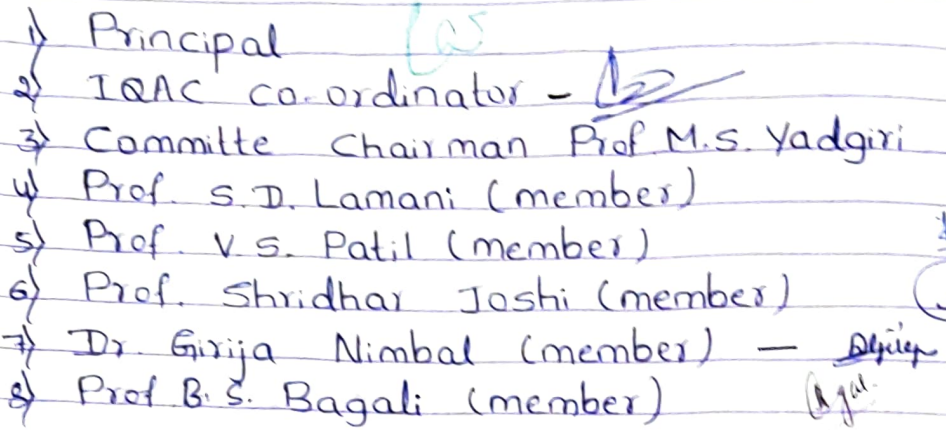 1) Principal
2) IQAC co-ordinator -
3) Committe Chairman Prof M.S. Yadgiri
4) Prof. S.D. Lamani (member)
5) Prof. V.S. Patil (member)
6) Prof. Shridhar Joshi (member)
7) Dr. Girija Nimbal (member) —
8) Prof B.S. Bagali (member)